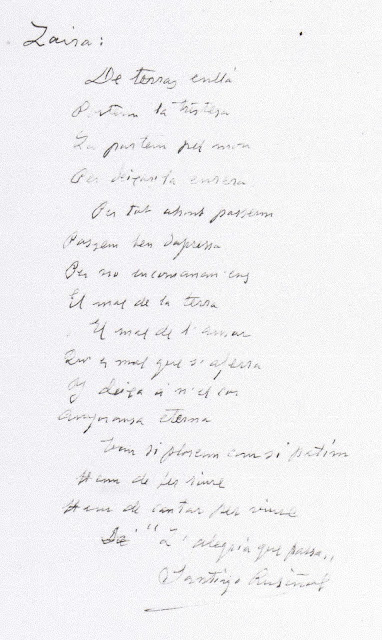 Zaira:
De terras enllá
Portem la tristesa
La portem pel mon
Per deixarla encesa
Per tot ahont passem
Passem ben depressa
Per no encomanarvos
El mal de la terra
El mal de l'amor
Qu'es mal que s'aferra
Y deixa á n'el cor
Anyoransa eterna
Tan si plorem com si patim
Hem de fer riure
Hem de cantar per viure
De "L'alegria que passa"
Santiago Rusiñol